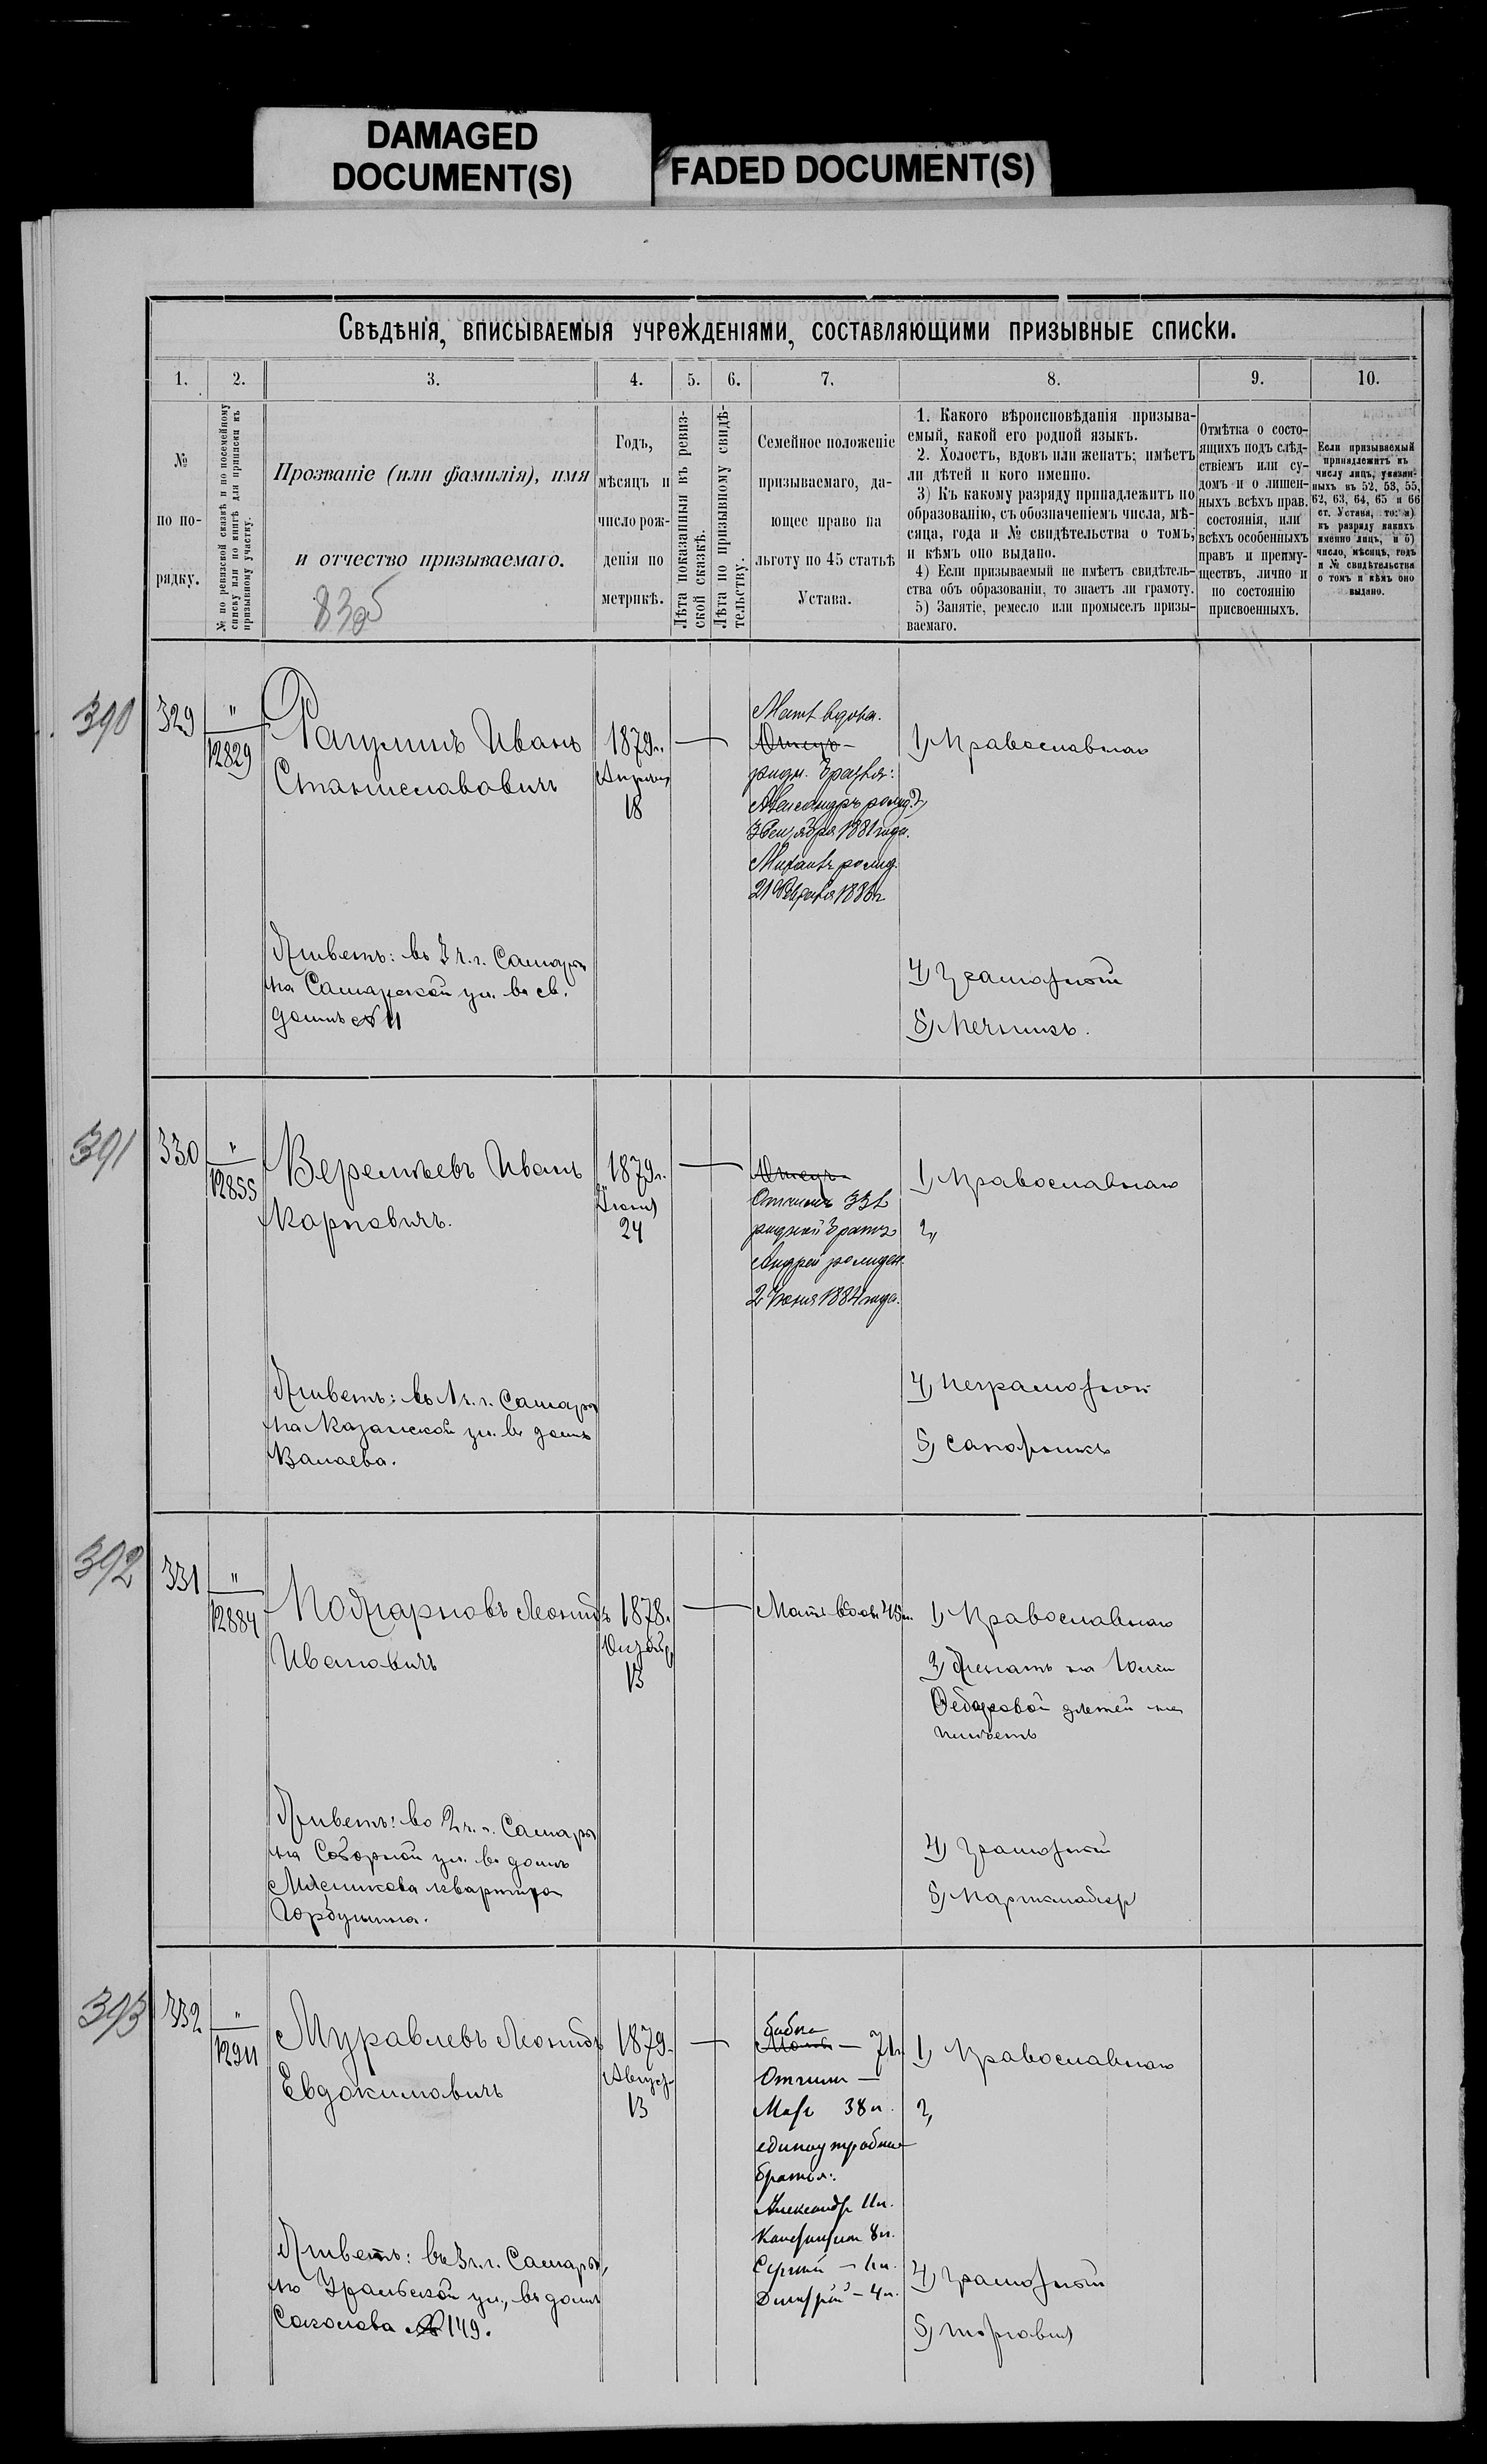 DAMAGED
DOCUMENT(S)
FADED DOCUMENT(S)
Свѣдѣнія, вписываемыя учрежденіями, составляющими призывные списки.
1.
2.
3.
4.
5.
6.
7.
8.
9.
10.
№
по по-
рядку.
№ по ревизской сказкѣ и по посемейному
списку или по книгѣ для приписки къ
призывному участку.
Прозваніе (или фамилія), имя
и отчество призываемаго.
Годъ,
мѣсяцъ и
число рож-
денія по
метрикѣ.
Лѣта показанныя въ ревиз-
ской сказкѣ.
Лѣта по призывному свидѣ-
тельству.
Семейное положеніе
призываемаго, да-
ющее право на
льготу по 45 статьѣ
Устава.
1. Какого вѣроисповѣданія призыва-
емый, какой его родной языкъ.
2. Холостъ, вдовъ или женатъ; имѣетъ
ли дѣтей и кого именно.
3) Къ какому разряду принадлежитъ по
образованію, съ обозначеніемъ числа, мѣ-
сяца, года и № свидѣтельства о томъ,
и кѣмъ оно выдано.
4) Если призываемый не имѣетъ свидѣтель-
ства объ образованіи, то знаетъ ли грамоту.
5) Занятіе, ремесло или промыселъ призы-
ваемаго.
Отмѣтка о состо-
ящихъ подъ слѣд-
ствіемъ или су-
домъ и о лишен-
ныхъ всѣхъ прав.
состоянія, или
всѣхъ особенныхъ
правъ и преиму-
ществъ, лично и
по состоянію
присвоенныхъ.
Если призываемый
принадлежитъ къ
числу лицъ, указан-
ныхъ въ 52, 53, 55,
62, 63, 64, 65 и 66
ст. Устава, то: а)
къ разряду какихъ
именно лицъ, и б)
число, мѣсяцъ, годъ
и № свидѣтельства
о томъ и кѣмъ оно
выдано.
390
329
"
12829
Рагулинъ Иванъ
Станиславовичъ
1879 г.
Апрѣля
18
Мать вдова.
Отецъ –
родн. братья:
Александръ рожд.
1881 года.
Михаилъ рожд.
21 Февраля
1) Православнаго
Живетъ: въ 3 ч. г. Самары
на Самарской ул. въ св.
домѣ № 11
4) Грамотный
5) Печникъ.
391
330
"
12855
Веремьевъ Иванъ
Карповичъ.
1879 г.
Іюня
24
Отецъ
Отчимъ
родной братъ
Андрей рожден.
2 Іюня 1884 года.
1) Православнаго
2)
Живетъ: въ 1 ч. г. Самары
на Казанской ул. въ домѣ
4) Неграмотный
5) Сапожникъ
392
331
"
12884
Пожарновъ Леонтій
Ивановичъ
1878 г.
Октябр.
13
Мать вдова 45 л.
1) Православнаго
2) Женатъ на Юліи
Ѳедоровой дѣтей не
имѣетъ
Живетъ: во 2 ч. г. Самары
на Соборной ул. въ домѣ
квартира
Горбунина.
4) Грамотный
5)
393
332
"
12911
Муравлевъ Леонтій
Евдокимовичъ
1879 г.
Август.
13
бабка
Мать – 71 г.
Отчимъ –
Мать 38 л.
единоутробные
братья:
Александръ 11 л.
Константин 8 л.
Сергѣй –
Дмитрій – 4 л.
1) Православнаго
2)
Живетъ: въ 3 ч. г. Самары,
по Уральской ул., въ домѣ
Соколова № 149.
4) Грамотный
5) Торговля